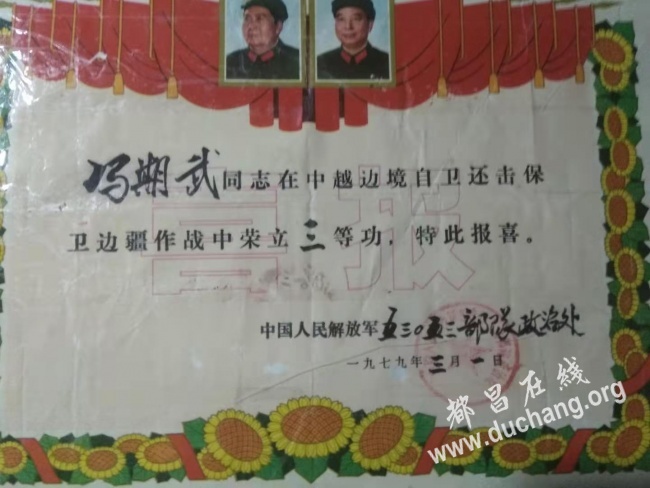 冯期武同志在中越边境自卫还击保
卫边疆作战中荣立三等功，特此报喜。
喜报
中国人民解放军五三〇五三部隊政治处
一九七九年三月一日
都昌在线
www.duchang.org